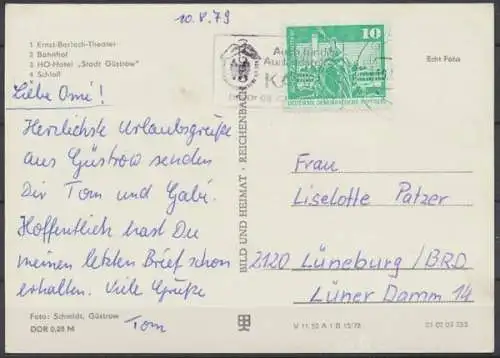 10.8.79
1 Ernst-Barlach-Theater
2 Bahnhof
3 HO-Hotel „Stadt Güstrow"
4 Schloß
Liebe Omi!
Herzlichste Urlaubsgrüße
aus Güstrow senden
Dir Tom und Gabi.
Hoffentlich hast Du
meinen letzten Brief schon
erhalten. Viele Grüße
Tom
Foto: Schmidt, Güstrow
DDR 0,25 M
BILD UND HEIMAT · REICHENBACH
10
DEUTSCHE DEMOKRATISCHE REPUBLIK
Echt Foto
Frau
Liselotte Patzer
2120 Lüneburg/BRD
Lüner Damm 14
V 11 50 A 1 B 13/78